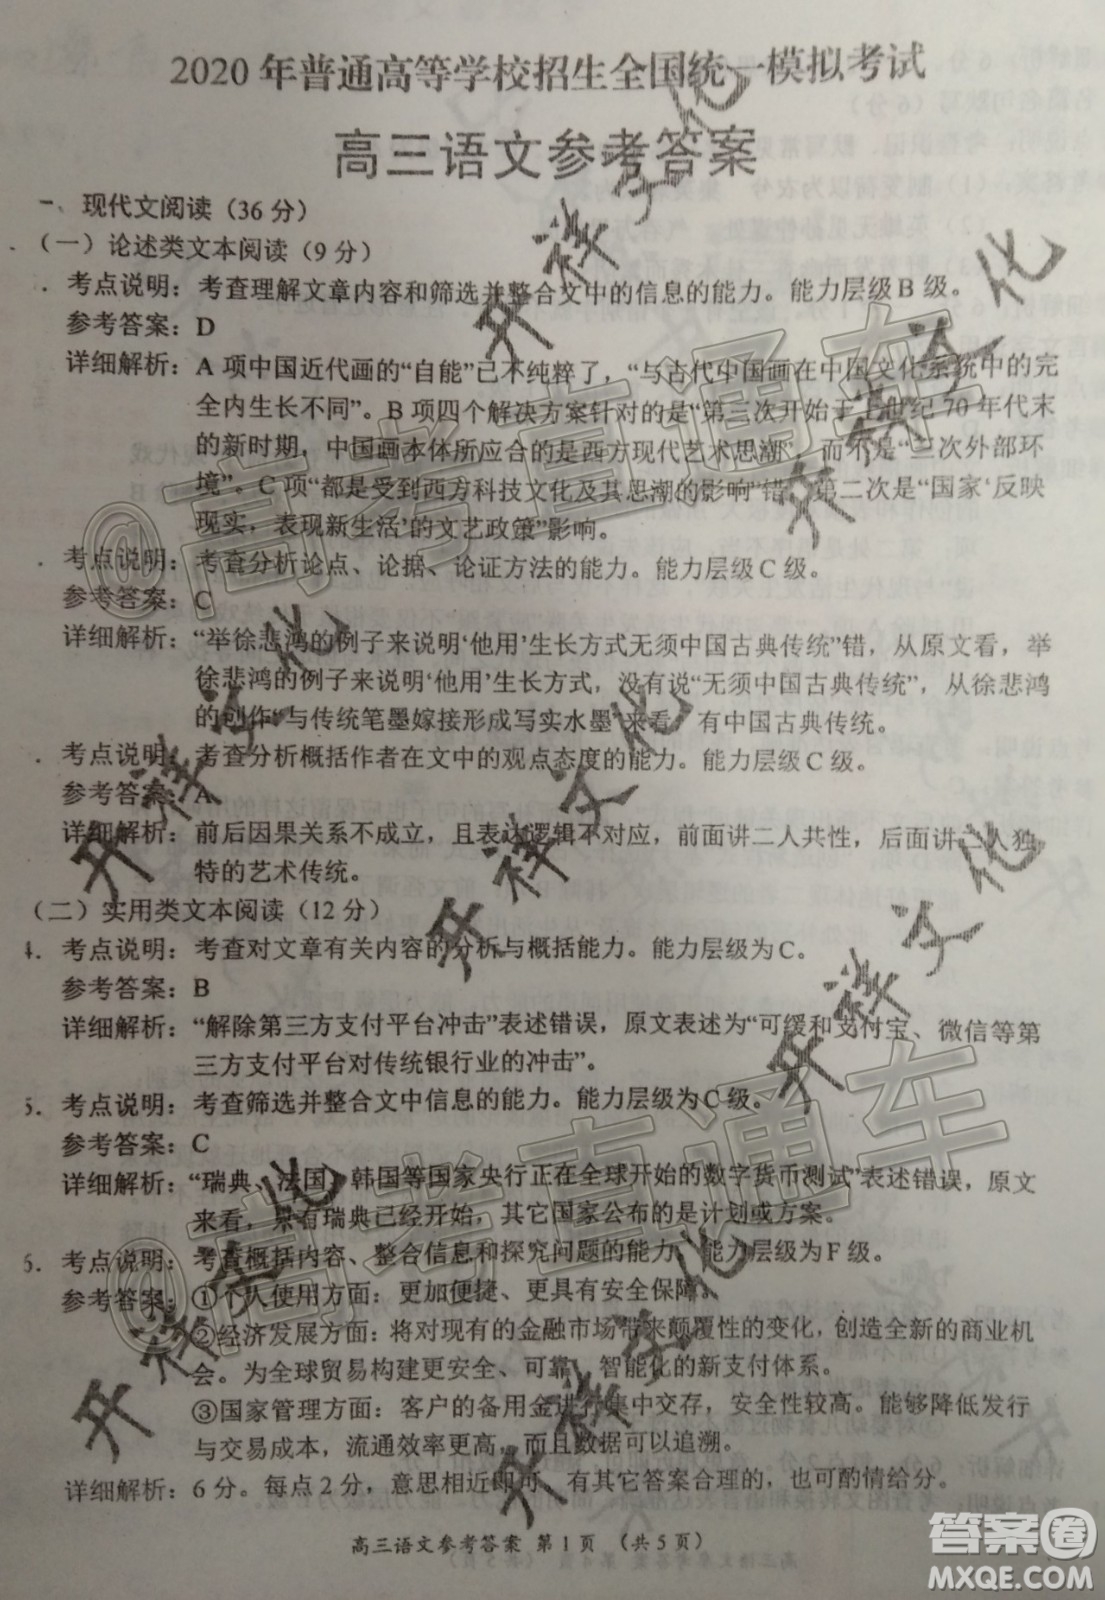 2020年普通高等学校招生全国统一模拟考试
高三语文参考答案
一、现代文阅读（36分）
（一）论述类文本阅读（9分）
．考点说明：考查理解文章内容和筛选并整合文中的信息的能力。能力层级B级。
参考答案：D
详细解析：A 项中国近代画的“自能”己不纯粹了，“与古代中国画在中国文化系统中的完
全内生长不同”。B项四个解决方案针对的是“第三次开始于上世纪70年代末
的新时期，中国画本体所应合的是西方现代艺术思潮”，而不是“三次外部环
境”。C项“都是受到西方科技文化及其思潮的影响”错，第二次是“国家‘反映
现实，表现新生活’的文艺政策”影响。
考点说明：考查分析论点、论据、论证方法的能力。能力层级C级。
参考答案：C
详细解析：“举徐悲鸿的例子来说明‘他用’生长方式无须中国古典传统”错，从原文看，举
徐悲鸿的例子来说明‘他用’生长方式，没有说“无须中国古典传统”，从徐悲鸿
的创作“与传统笔墨嫁接形成写实水墨”来看，有中国古典传统。
．考点说明：考查分析概括作者在文中的观点态度的能力。能力层级C级。
参考答案：A
详细解析：前后因果关系不成立，且表达逻辑不对应，前面讲二人共性，后面讲二人独
特的艺术传统。
（二）实用类文本阅读（12分）
4．考点说明：考查对文章有关内容的分析与概括能力。能力层级为C。
参考答案：B
详细解析：“解除第三方支付平台冲击”表述错误，原文表述为“可缓和支付宝、微信等第
三方支付平台对传统银行业的冲击”。
5．考点说明：考查筛选并整合文中信息的能力。能力层级为C级。
参考答案：C
详细解析：“瑞典、法国、韩国等国家央行正在全球开始的数字货币测试”表述错误，原文
来看，只有瑞典已经开始，其它国家公布的是计划或方案。
6．考点说明：考查概括内容、整合信息和探究问题的能力。能力层级为F级。
参考答案：①个人使用方面：更加便捷、更具有安全保障。
②经济发展方面：将对现有的金融市场带来颠覆性的变化，创造全新的商业机
会。为全球贸易构建更安全、可靠、智能化的新支付体系。
③国家管理方面：客户的备用金进行集中交存，安全性较高。能够降低发行
与交易成本，流通效率更高，而且数据可以追溯。
详细解析：6分。每点2分，意思相近即可，有其它答案合理的，也可酌情给分。
高三语文参考答案 第1页 （共5页）
@高考直通车
@高考直通车
开祥文化
开祥文化
开祥文化
开祥文化
开祥文化
开祥文化
开祥文化
答案圈
MXQE.COM